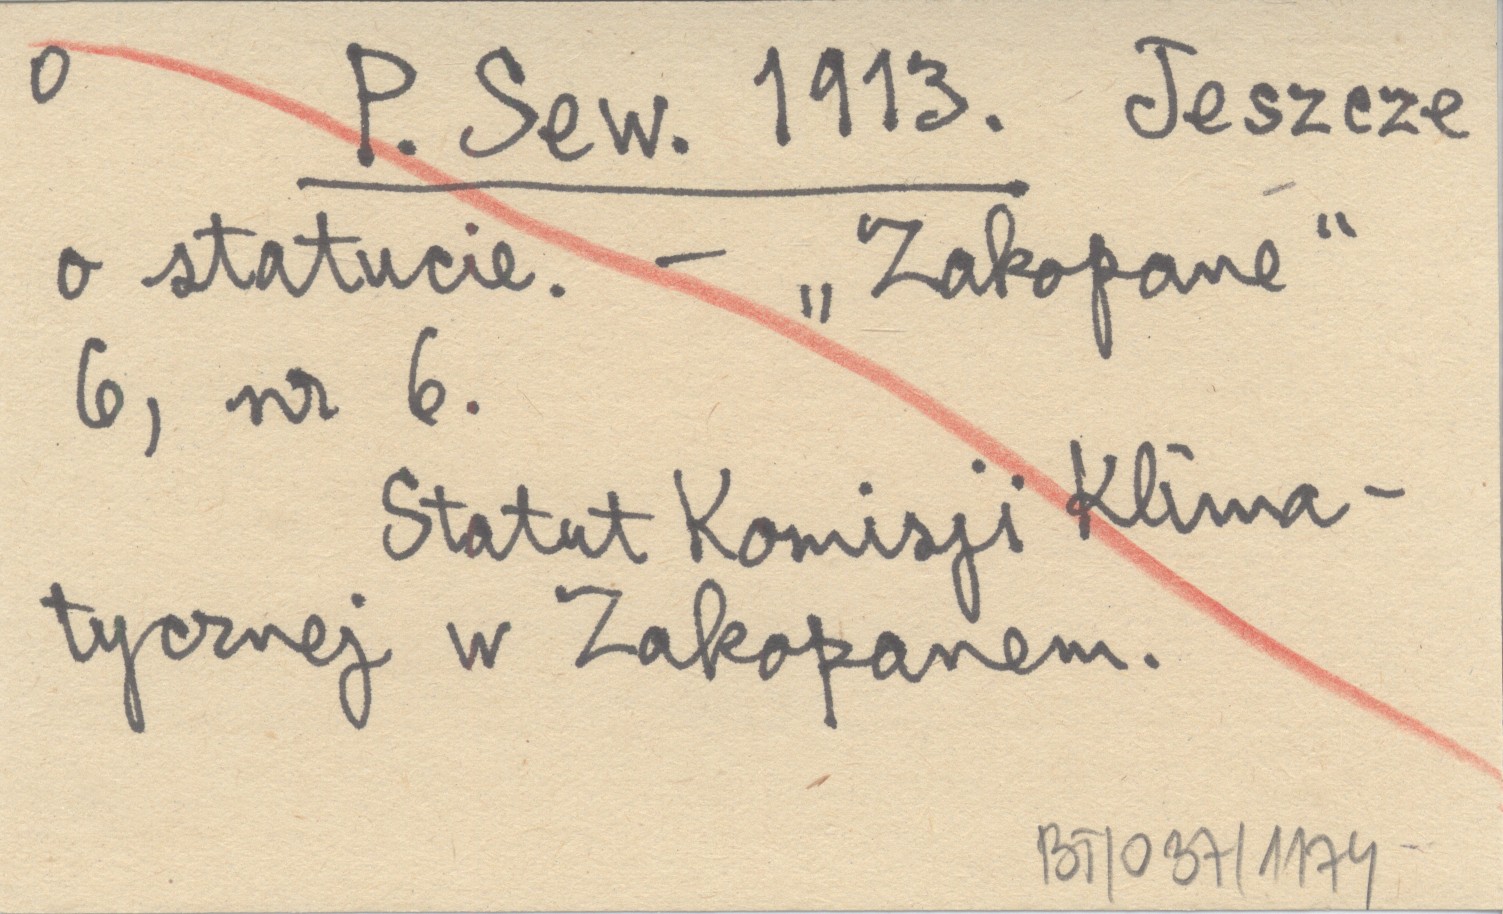 o P. Sew. 1913. Jeszcze
o statucie. – „Zakopane“
6, nr 6.
Statut Komisji Klima-
tycznej w Zakopanem.
BT/037/1174